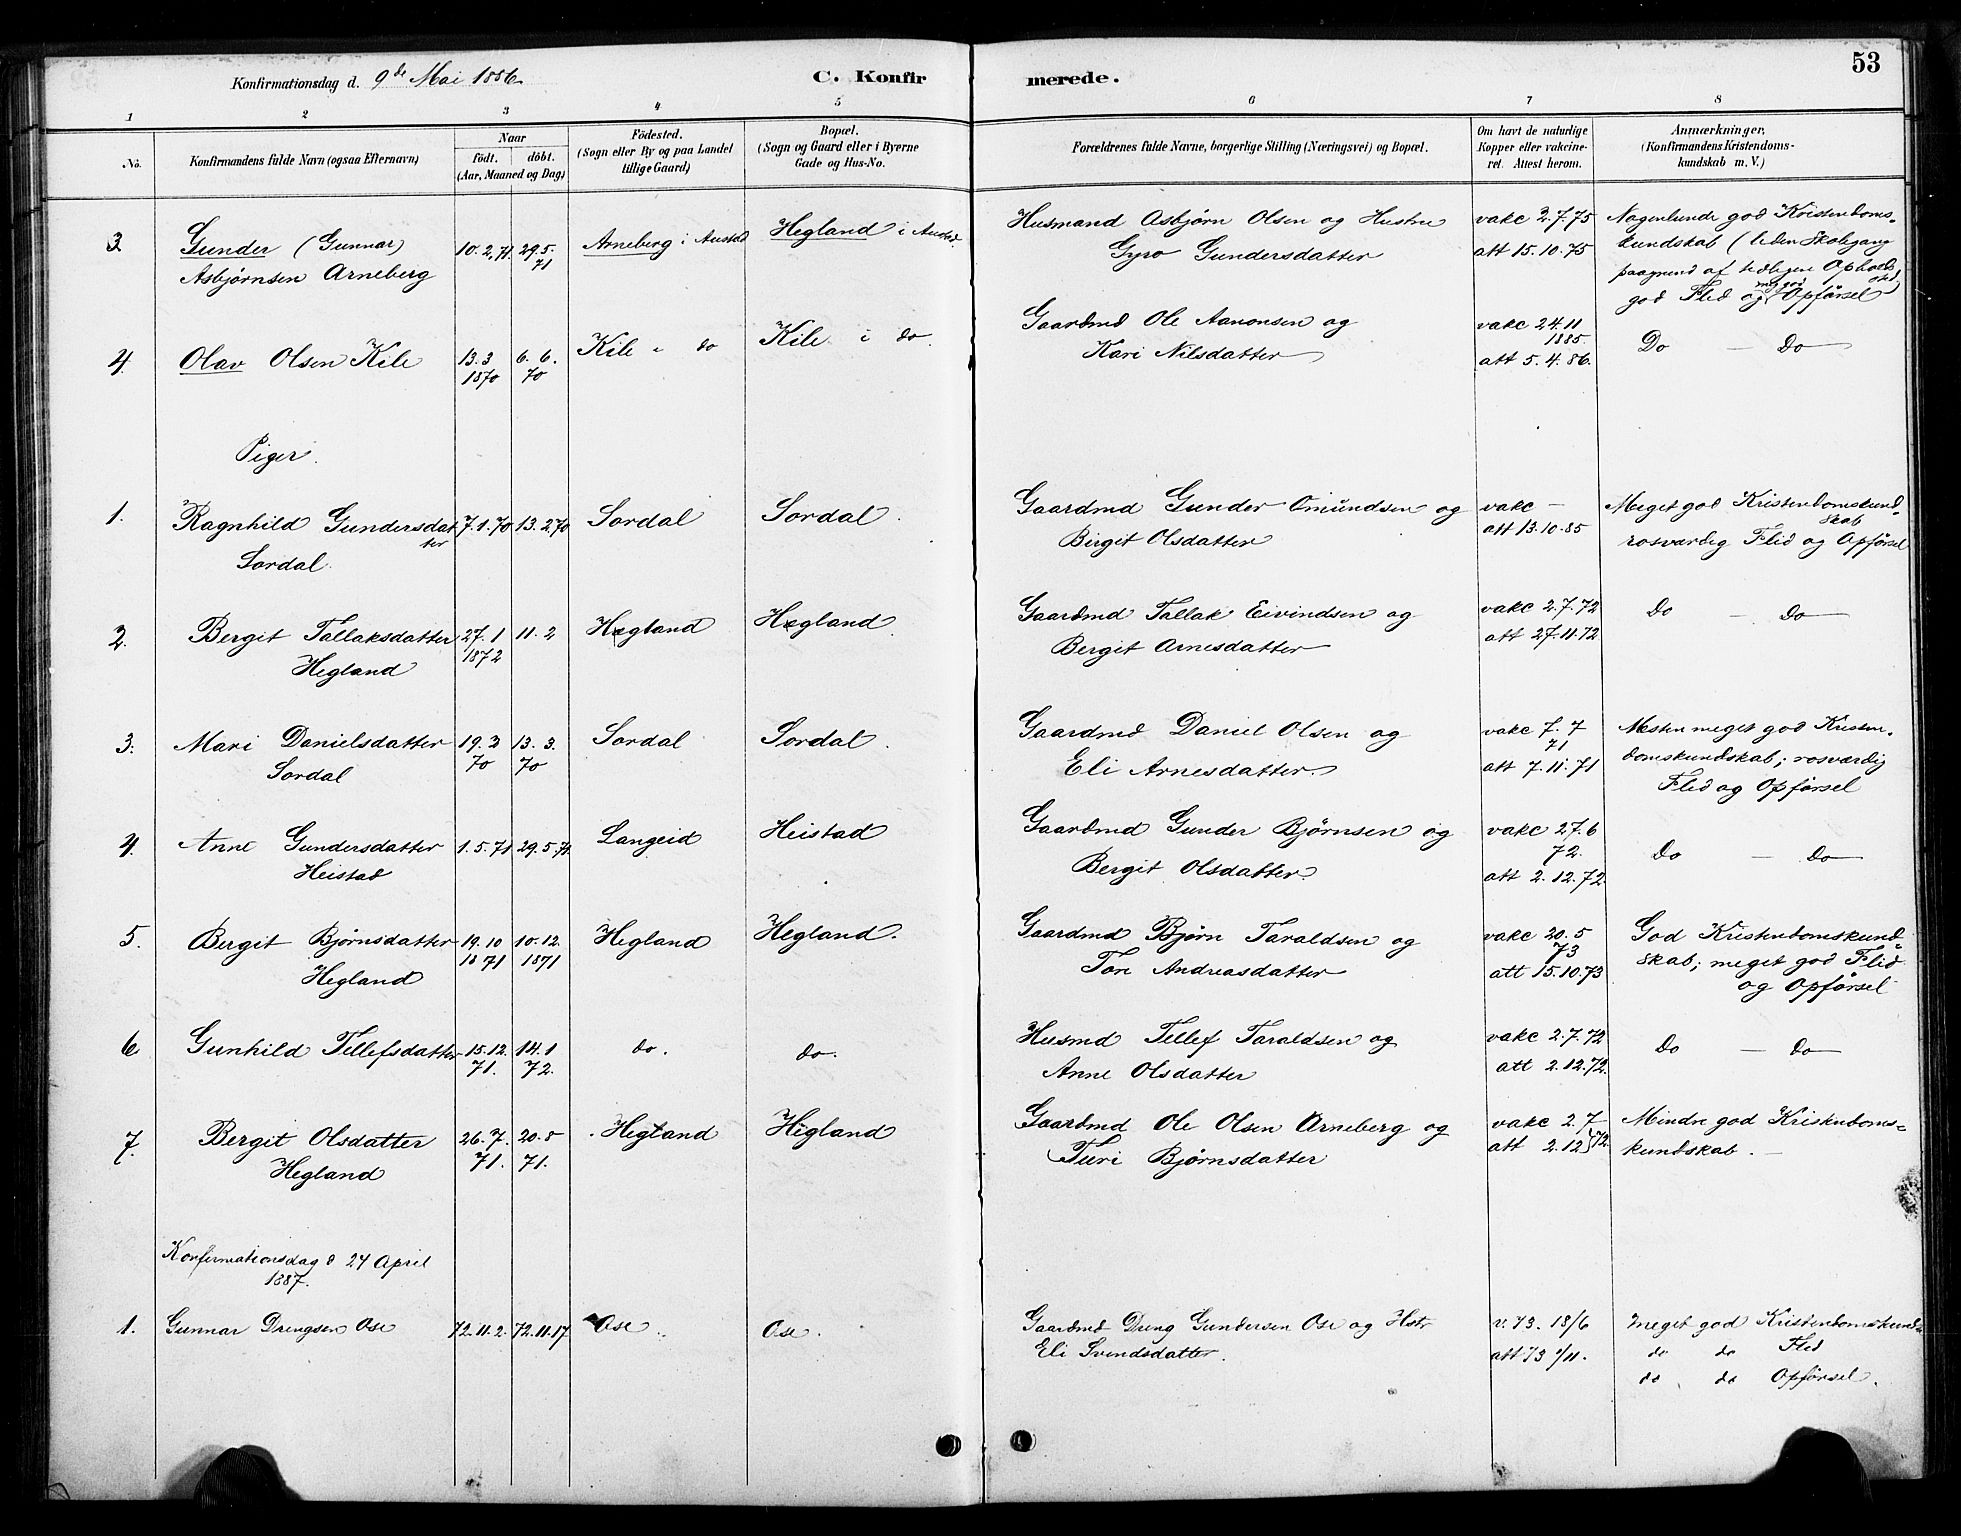 53
Konfirmationsdag d. 9de Mai 1886. C. Konfirmerede.
1 2 3 4 5 6 7 8
No. Konfirmandens fulde Navn (ogsaa Efternavn) Naar födt. döbt. (Aar, Maaned og Dag) Födested. (Sogn eller By og paa Landet tillige Gaard) Bopæl. (Sogn og Gaard eller i Byerne Gade og Hus-No. Forældrenes fulde Navne, borgerlige Stilling (Næringsvei) og Bopæl. Om havt de naturlige Kopper eller vakcineret. Attest herom. Anmærkninger. (Konfirmandens Kristendomskundskab m. V.)
3. Gunder (Gunnar) 10.2.71 29.5. Arneberg i Austad Hegland i Austad Husmand Asbjørn Olsen og Hustru vakc 2.7.75 Nogenlunde god Kristendoms-
Asbjørnsen Arneberg 71 Gyro Gundersdatter att 15.10.75 kundskab (liden Skolegang
paagrund af tidligere Opholdssted,
god Flid og meg god Opførsel
4. Olav Olsen Kile 13.3 6.6. Kile i do Kile i do. Gaardmd Ole Aanonsen og vakc 24.11 1885. Do — Do
1870 70 Kari Nilsdatter att 5.4.86.
Piger.
1. Ragnhild Gundersdatter 7.1.70 13.2.70 Sordal Sordal. Gaardmd Gunder Omundsen og vakc — Meget god Kristendomskundskab
Sordal. Birgit Olsdatter att 13.10.85 rosværdig Flid og Opførsel
2. Bergit Tallaksdatter 27.1 11.2 Hegland Hegland Gaardmd Tallak Eivindsen og vakc 2.7.72 Do — Do
Hegland 1872 Bergit Arnesdatter att 27.11.72
3. Mari Danielsdatter 19.2 13.3. Sordal Sordal. Gaardmd Daniel Olsen og vakc 7.7 71 Næsten meget god Kristen-
Sordal 70 70 Eli Arnesdatter. att 7.11.71 domskundskab; rosværdig
Flid og Opførsel
4. Anne Gundersdatter 1.5.71 29.5.71. Langeid Heistad Gaardmd Gunder Bjørnsen og vakc 27.6 72. Do — Do
Heistad Bergit Olsdatter. att 2.12.72.
5. Bergit Bjørnsdatter 19.10 10.12. Hegland Hegland. Gaardmd Bjørn Taraldsen og vakc 20.5 73 God Kristendomskund-
Hegland 1871 1871 Tone Andreasdatter att 15.10.73 skab; meget god Flid
og Opførsel
6 Gunhild Tellefsdatter 15.12. 14.1 do. do. Husmd Tellef Taraldsen og vakc 2.7.72 Do — Do
71. 72. Anne Olsdatter att 2.12.72.
7. Bergit Olsdatter 26.7. 20.8 Hegland Hegland Gaardmd Ole Olsen Arneberg og vakc 2.7 Mindre god Kristendoms-
Hegland 71. 71. Turi Bjørnsdatter att 2.12 } 72. kundskab. —
Konfirmationsdag d 24 April
1887.
1. Gunnar Drengsen Ose 72.11.2. 72.11.17. Ose Ose. Gaardmd Dreng Gundersen Ose og Hstr v. 73. 18/6 Meget god Kristendomskunds
Eli Svendsdatter. att 73 1/11. do do Flid
do do Opførsel.